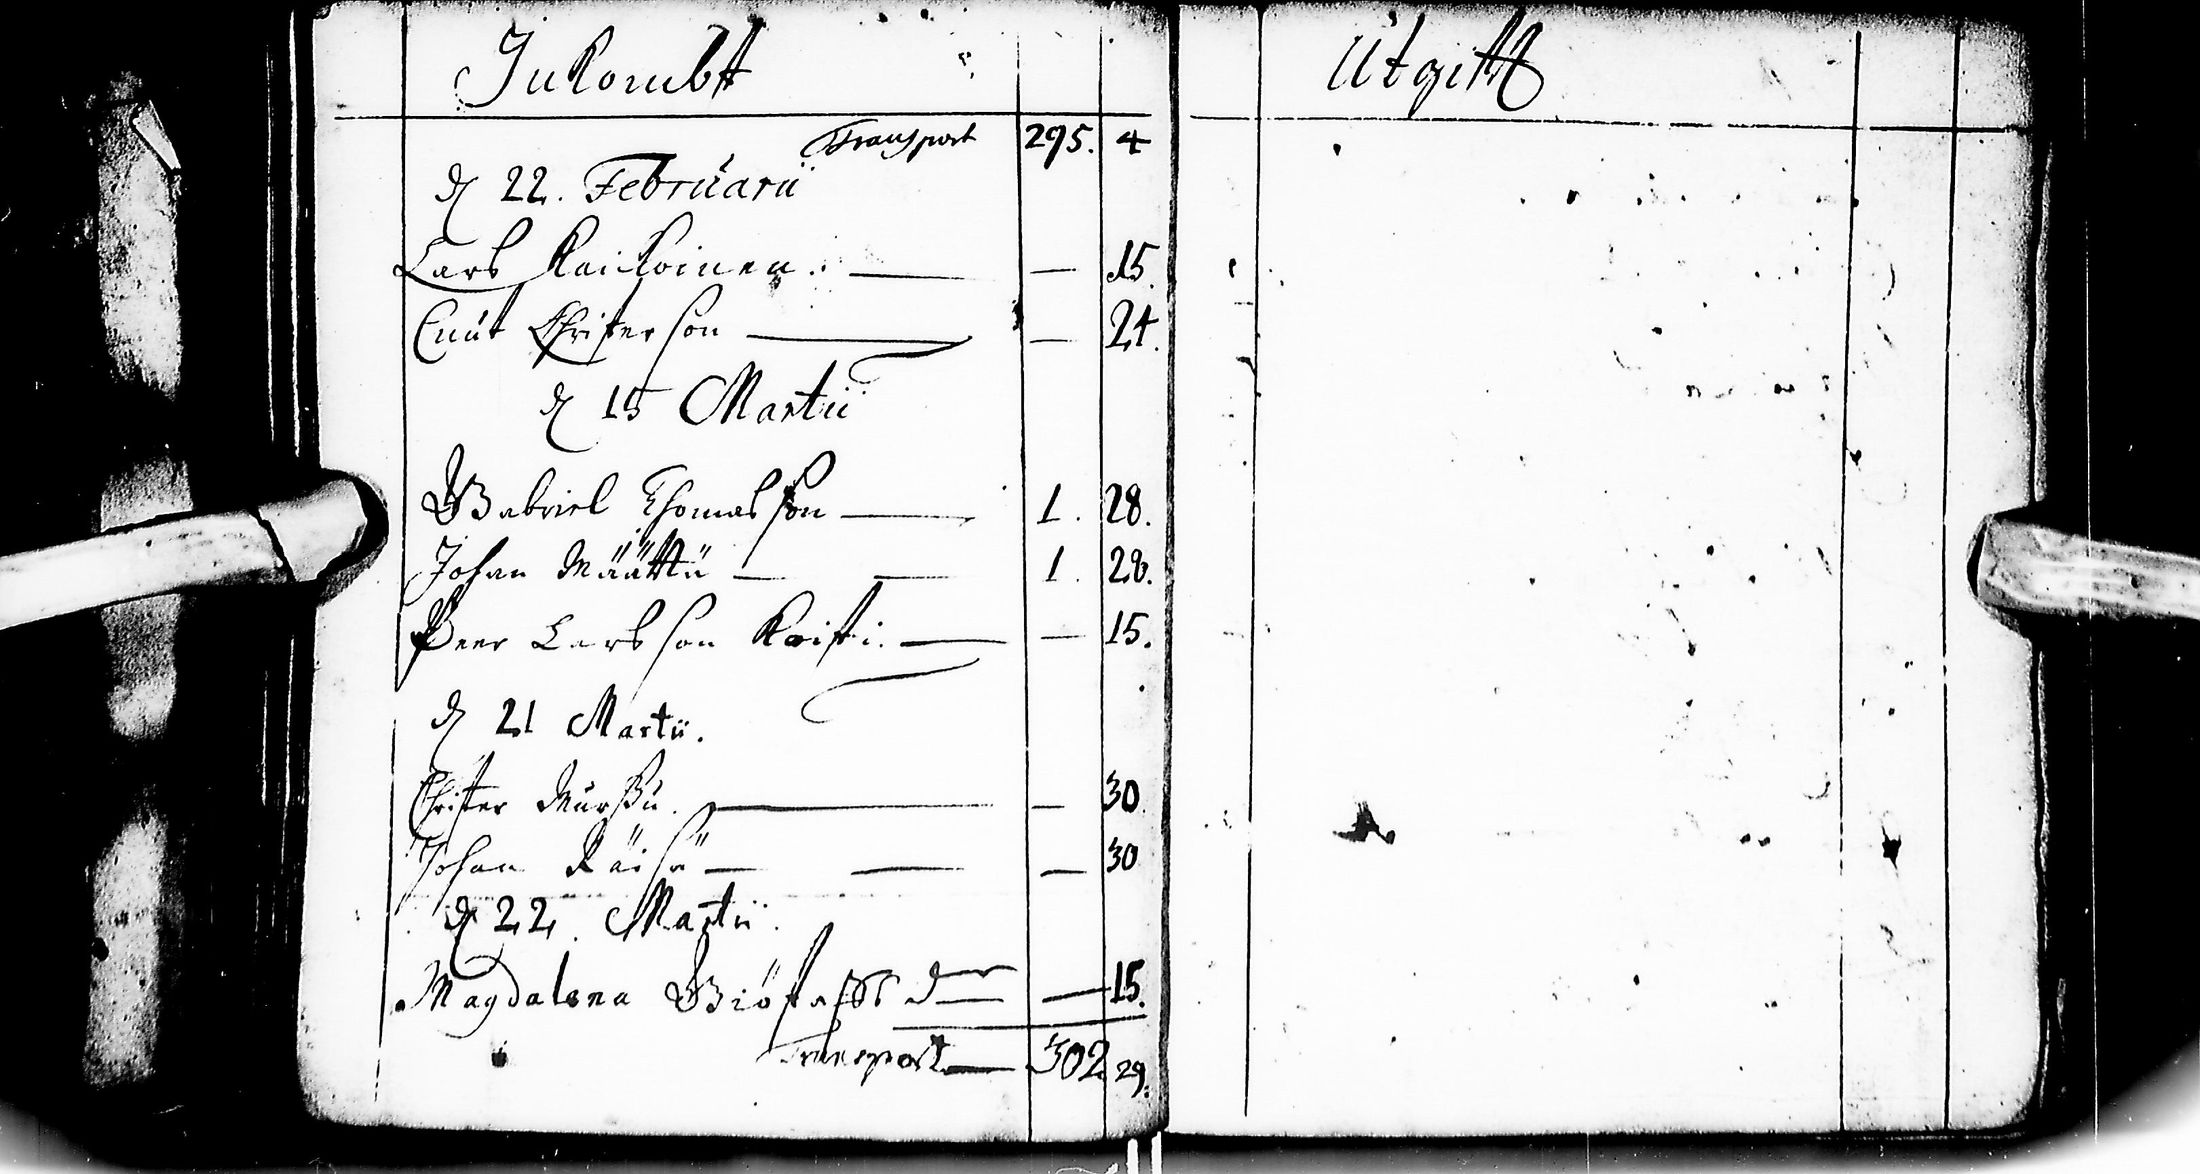 Inkombt
Transport 295. 4
d 22. Februarii
Lars Kaikoinen. — — 15.
Cnut Christersson — — 24.
d 15 Martii
Gabriel Thomasson — 1. 28.
Johan Määttä — — 1. 28.
Peer Larsson Koisti. — — 15.
d 21 Martii.
Christer Murßu. — — 30.
Johan Räisä — — — 30
d 22. Martii.
Magdalena — 15.
Transport — 302. 29.
Utgifft